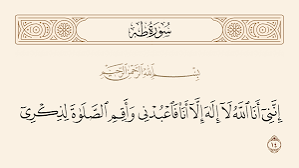 سُورَةُ طه
بِسْمِ اللَّهِ الرَّحْمَٰنِ الرَّحِيمِ
إِنَّنِىٓ أَنَا ٱللَّهُ لَآ إِلَٰهَ إِلَّآ أَنَا۠ فَٱعْبُدْنِى وَأَقِمِ ٱلصَّلَوٰةَ لِذِكْرِىٓ
١٤